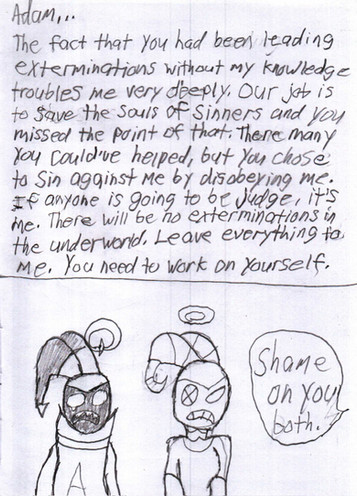 Adam...
The fact that you had been leading
exterminations without my knowledge
troubles me very deeply. Our job is
to save the souls of sinners and you
missed the point of that. There many
you could've helped, but you chose
to sin against me by disobeying me.
If anyone is going to be judge, it's
me. There will be no exterminations in
the underworld. Leave everything to
me. You need to work on yourself.
Shame
on you
both.
A